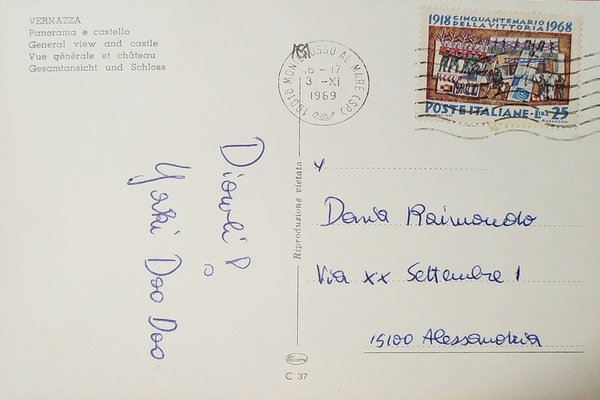 VERNAZZA
Panorama e castello
General view and castle
Vue générale et château
Gesamtansicht und Schloss
1918 CINQUANTENARIO 1968
DELLA VITTORIA
POSTE ITALIANE - LIRE 25
19016 MONTEROSSO AL MARE (SP)
15-17
3 -XI
1969
Riproduzione vietata
Yaki Doo Doo
Daria Raimondo
Via XX Settembre 1
15100 Alessandria
C 37